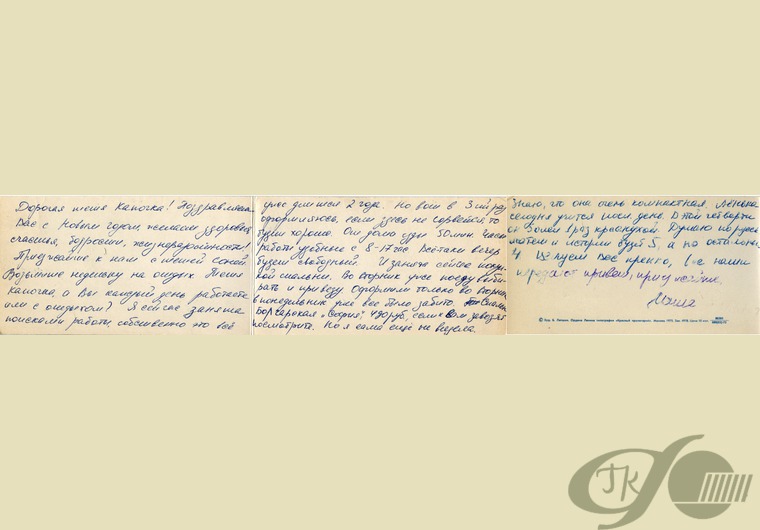 Дорогая тетя Капочка! Поздравляем
Вас с Новым годом, желаем здоровья,
счастья, бодрости, жизнерадостности!
Приезжайте к нам с тетей Соней.
Возьмите недельку на отдых. Тетя
Капочка, а Вы каждый день работаете
или с отдыхом? Я сейчас занята
поисками работы, собственно это всё
уже длится 2 года. Но вот в 3-ий раз
оформляюсь, если здесь не сорвется, то
будет хорошо. От дома езды 50 мин. Часы
работы удобные с 8-17 час. Всё-таки вечер
будет свободный. И занята сейчас
кой спальни. Во вторник уже поеду выби-
рать и привезу. Оформили только во вторник
в понедельник уже все было забито.
Болгарская „София" 490 руб, если
посмотрите. Но я сама ещё не видела.
Знаю, что она очень компактная. Лёнька
сегодня учится последн. день. В этой четверти
он болел 1 раз краснухой. Думаю по русск.
матем и истории будет 5, а по остальн.
4. Целуем Вас крепко, все наши
передают привет, приезжайте.